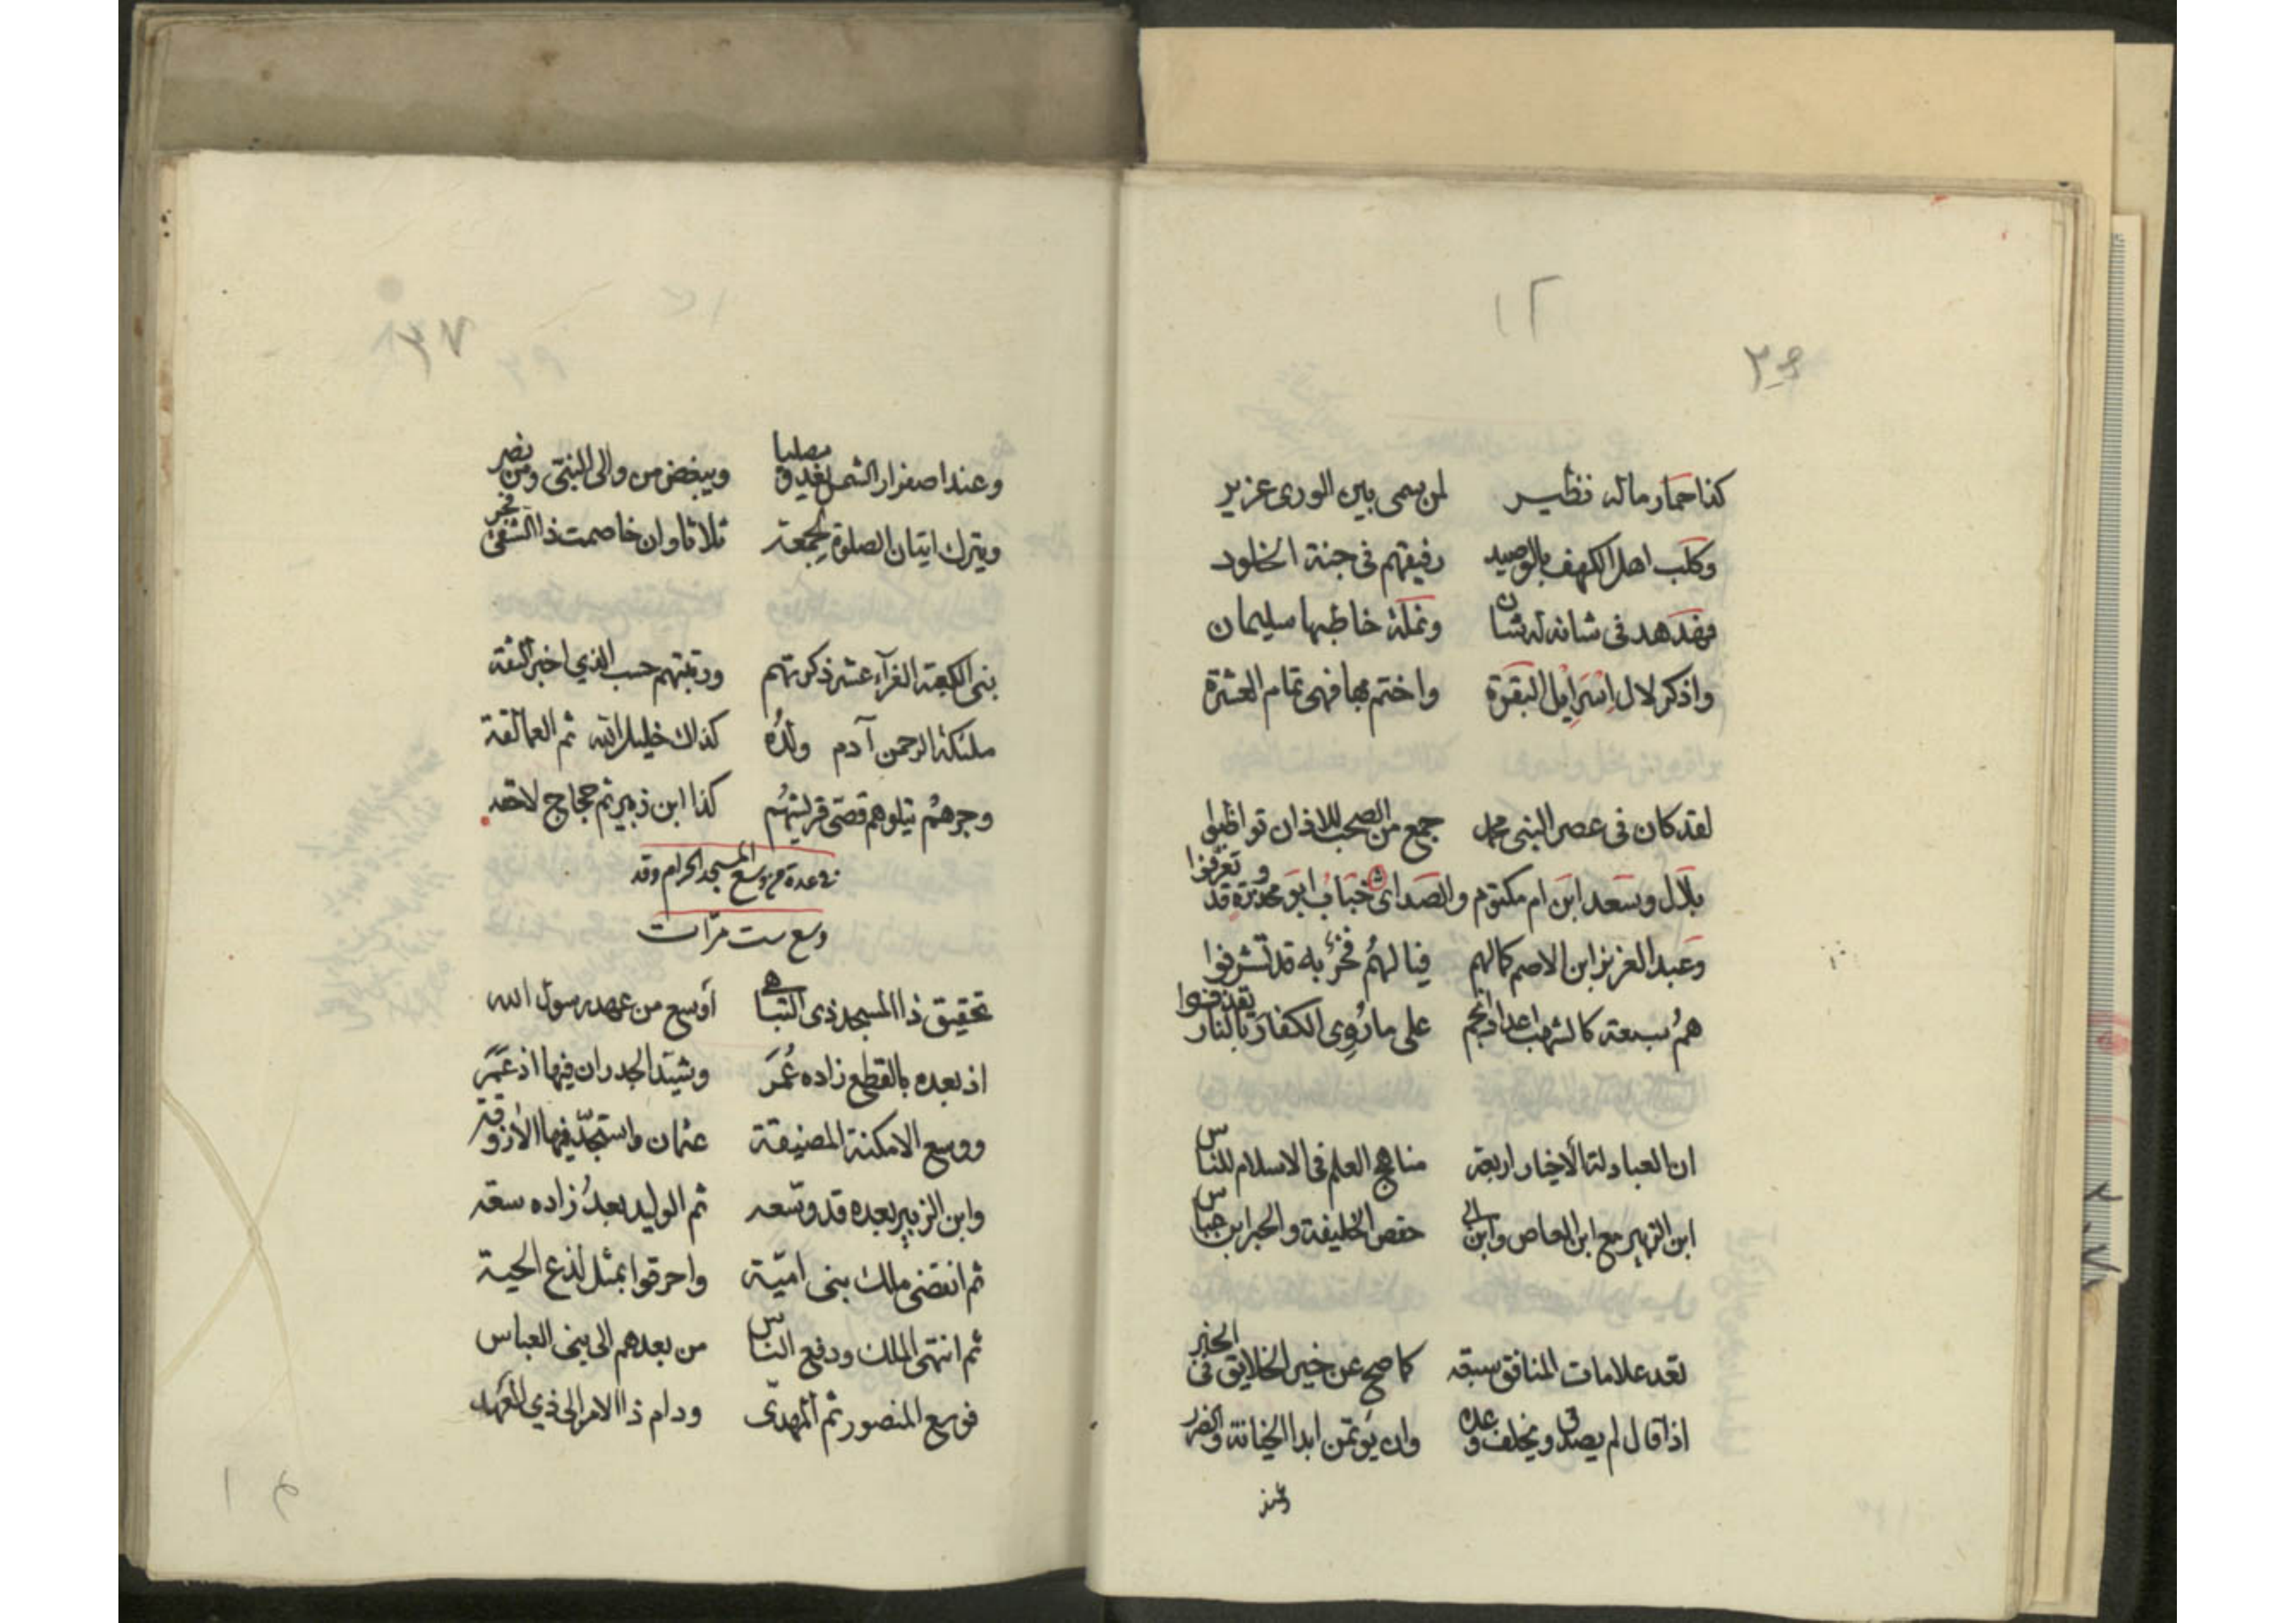 ١٢
كذا حمار ماله نظير لمن سمى بين الورى عزير
وكلب اهل الكهف بالوصيد رفيقهم فى جنة الخلود
فهدهد فى شانه له شان ونملة خاطبها سليمان
واذكر لال اسرايل البقرة واختم بها فهى تمام العشرة
لقد كان فى عصر النبى محمد جمع من الصحب للاذان تواظبوا
بلال وسعد ابن ام مكتوم والصداى خباب ابو محذورة قد وتعرفوا
وعبد العزيز ابن الاصم كمالهم فيا لهم فخر به قد تشرفوا
هم سبعة كالشهب اعداد انجم على ما روى الكفار بالنار يقذفوا
ان العبادلة الأخيار اربعة مناهج العلم فى الاسلام للناس
ابن الزبير مع ابن العاص وابن ابى حفص الخليفة والحبر ابن عباس
تعد علامات المنافق سبعة كما صح عن خير الخلايق فى الخبر
اذا قال لم يصدق ويخلف وعده وان يؤتمن ابدا الخيانة والضرر
وعند
٣٧
وعند اصفرار الشمس يغدو مصليا ويبغض من والى النبى ومن نصر
ويترك اتيان الصلوة لجمعة ثلاثا وان خاصمت ذا الشقى فجر
بنى الكعبة الغرآء عشر ذكرتهم ورتبتهم حسب الذي اخبر الثقة
ملئكة الرحمن آدم ولده كذاك خليل الله ثم العمالقة
وجرهم يتلوهم قصى قريشهم كذا ابن زبير ثم حجاج لاحقه
فى عدة من وسع المسجد الحرام وقد
وسع ست مرّات
تحقيق ذا المسجد ذى التباهى أوسع من عهد رسول الله
اذ بعده بالقطع زاده عُمَر وشيّد الجدران فيها اذ عمَّر
ووسع الامكنة المضيقة عثمان واستجدّ فيها الأروقة
وابن الزبير بعده قد وسّعه ثم الوليد بعدُ زاده سعه
ثم انقضى ملك بنى اميّة واحرقوا بمثل لذع الحية
ثم انتهى الملك ودفع الناس من بعدهم الى بنى العباس
فوسع المنصور ثم المهدىّ ودام ذا الامر الى ذي العهد